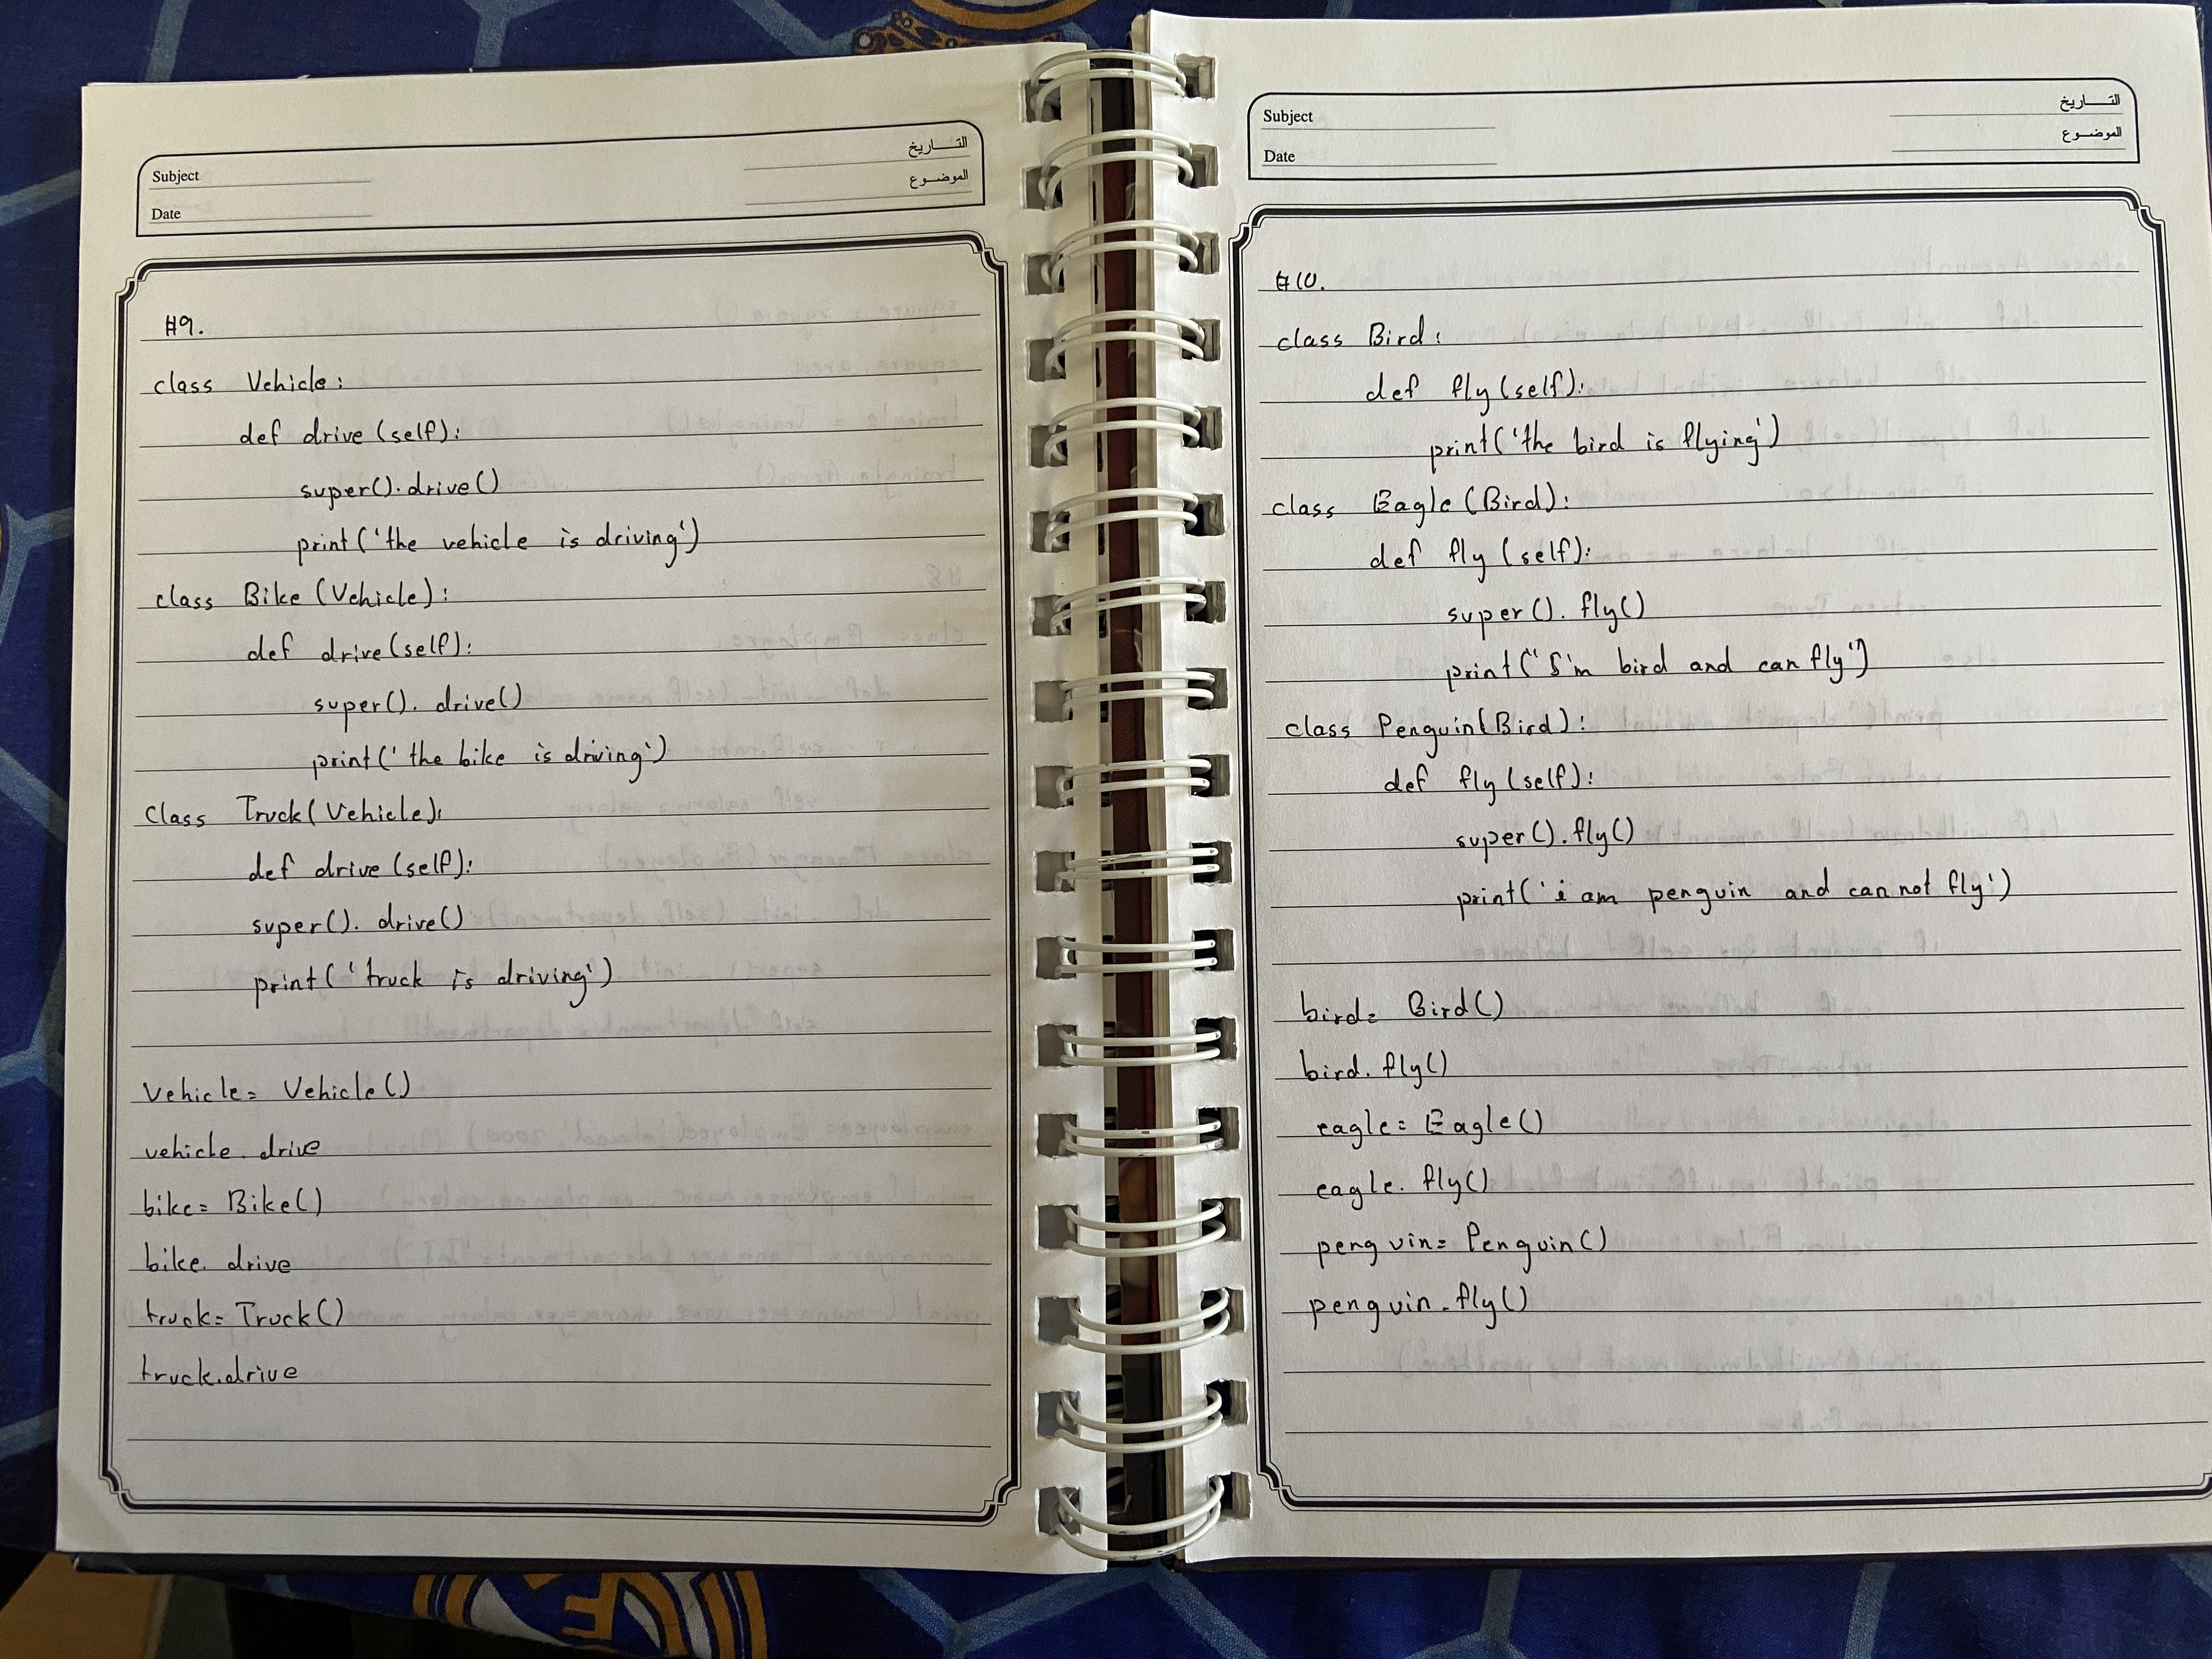 Subject
التـــاريخ
Date
الموضـوع
#9.
class Vehicle:
def drive(self):
super().drive()
print('the vehicle is driving')
class Bike(Vehicle):
def drive(self):
super().drive()
print('the bike is driving')
class Truck(Vehicle):
def drive(self):
super().drive()
print('truck is driving')
Vehicle= Vehicle()
vehicle.drive
bike= Bike()
bike.drive
truck= Truck()
truck.drive
Subject
التـــاريخ
Date
الموضـوع
#10.
class Bird:
def fly(self):
print('the bird is flying')
class Eagle(Bird):
def fly(self):
super().fly()
print("I'm bird and can fly")
class Penguin(Bird):
def fly(self):
super().fly()
print('i am penguin and can not fly')
bird= Bird()
bird.fly()
eagle= Eagle()
eagle.fly()
penguin= Penguin()
penguin.fly()